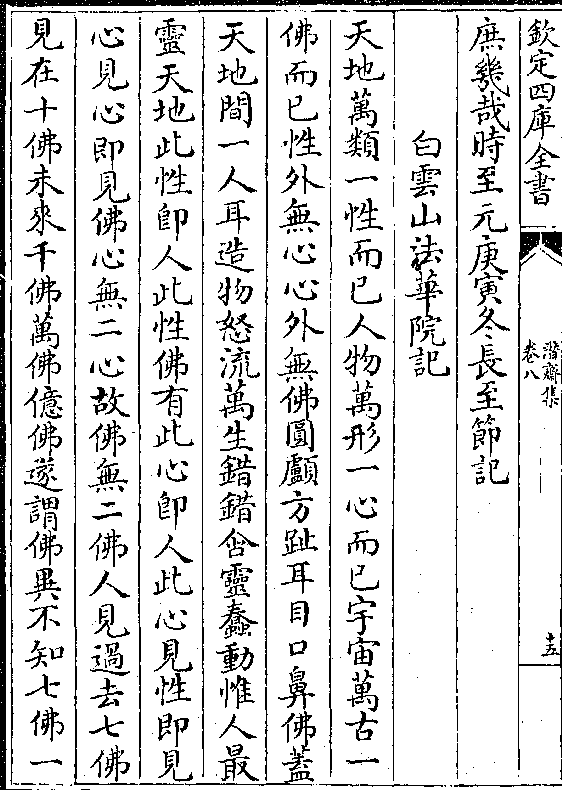 欽定四庫全書
潛齋集
卷八
十五
庶幾哉時至元庚寅冬長至節記
白雲山法華院記
天地萬類一性而已人物萬形一心而已宇宙萬古一
佛而已性外無心心外無佛圓顱方趾耳目口鼻佛蓋
天地間一人耳造物怒流萬生錯錯含靈蠢動惟人最
靈天地此性即人此性佛有此心即人此心見性即見
心見心即見佛心無二心故佛無二佛人見過去七佛
見在十佛未來千佛萬佛億佛遂謂佛異不知七佛一